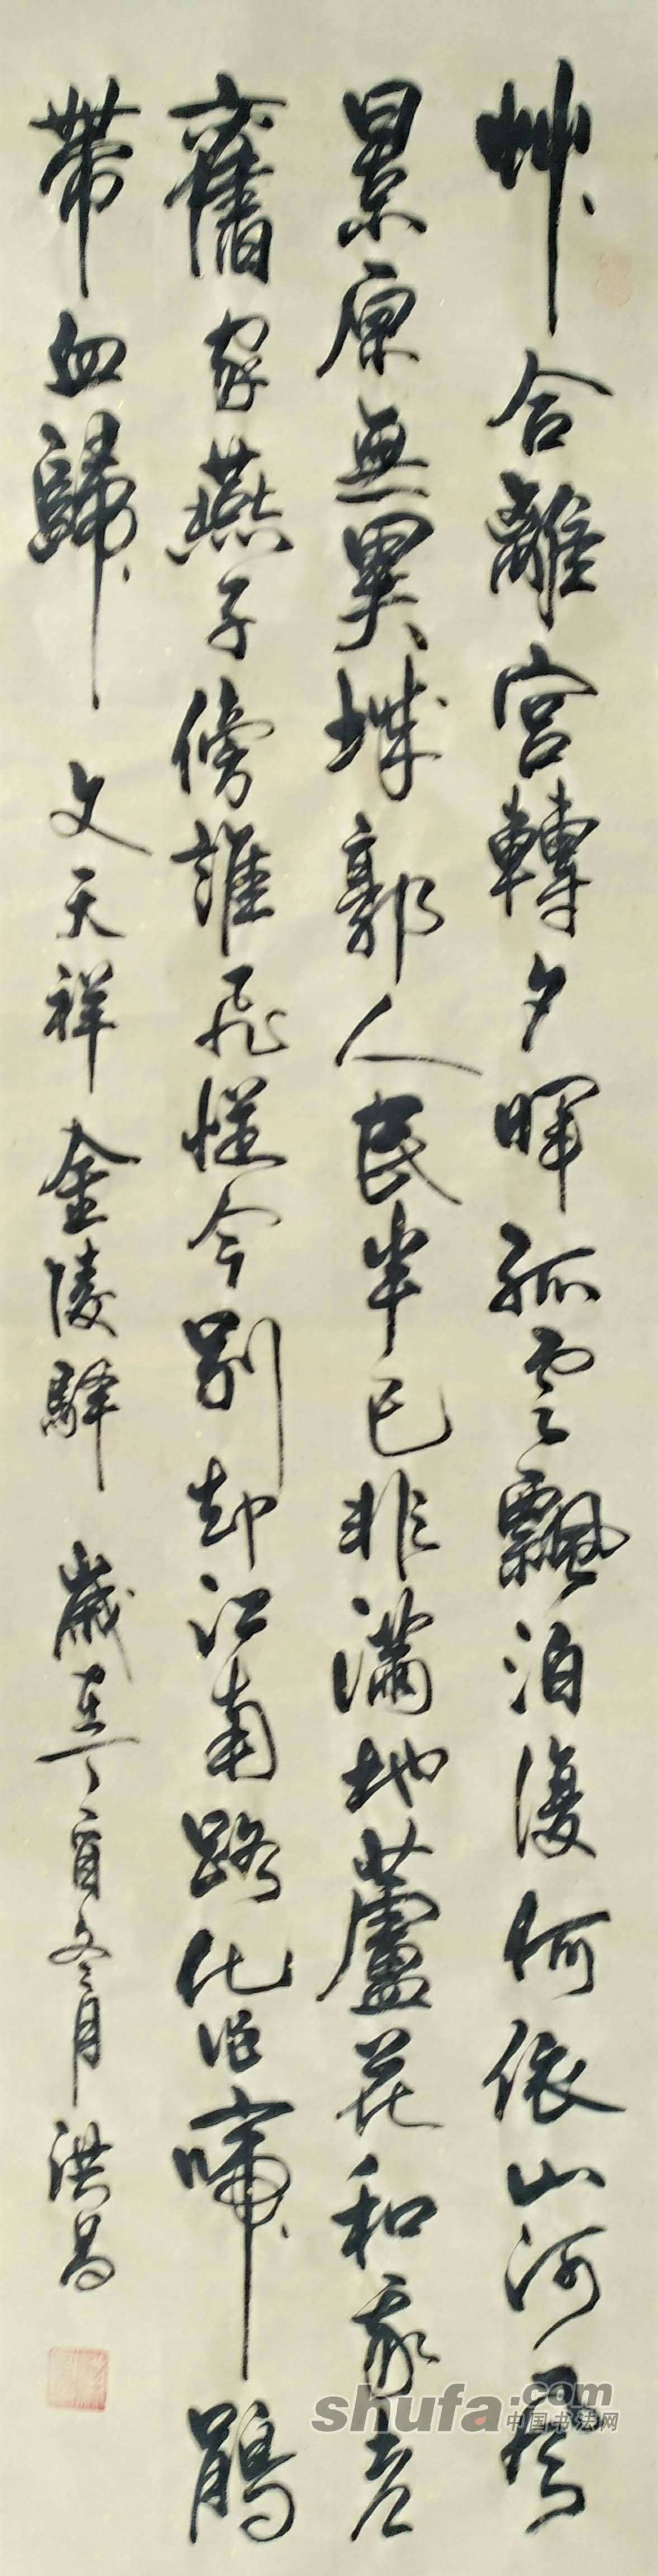 艸合離宮轉夕暉孤雲飄泊復何依山河風
景原無異城郭人民半已非滿地蘆花和我老
舊家燕子傍誰飛從今別却江南路化作啼鵑
帶血歸 文天祥 金陵驛 歲在丁酉冬月 洪昌
shufa.com
中国书法网